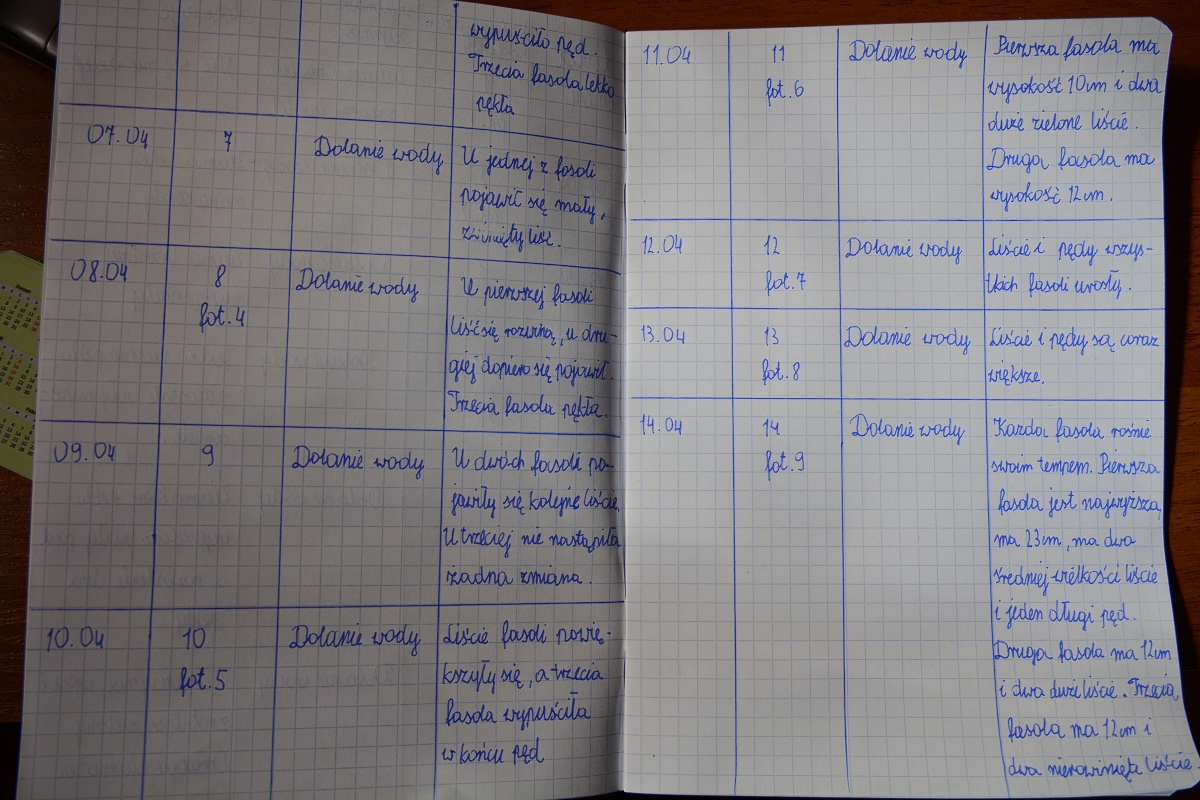 wypuściło pęd.
Trzecia fasola lekko
pękła
07.04 7 Dolanie wody U jednej z fasoli
pojawił się mały,
zwinięty liść.
08.04 8 Dolanie wody U pierwszej fasoli
fot.4 liść się rozwinął, u dru-
giej dopiero się pojawił.
Trzecia fasola pękła.
09.04 9 Dolanie wody U dwóch fasoli po-
jawiły się kolejne liście.
U trzeciej nie nastąpiła
żadna zmiana.
10.04 10 Dolanie wody Liście fasoli powię-
fot.5 kszyły się, a trzecia
fasola wypuściła
w końcu pęd
11.04 11 Dolanie wody Pierwsza fasola ma
fot.6 wysokość 10cm i dwa
duże zielone liście.
Druga fasola ma
wysokość 12cm.
12.04 12 Dolanie wody Liście i pędy wszys-
fot.7 tkich fasoli urosły.
13.04 13 Dolanie wody Liście i pędy są coraz
fot.8 większe.
14.04 14 Dolanie wody Każda fasola rośnie
fot.9 swoim tempem. Pierwsza
fasola jest najwyższa,
ma 23cm, ma dwa
średniej wielkości liście
i jeden długi pęd.
Druga fasola ma 12cm
i dwa duże liście. Trzecia
fasola ma 12cm i
dwa nierozwinięte liście.